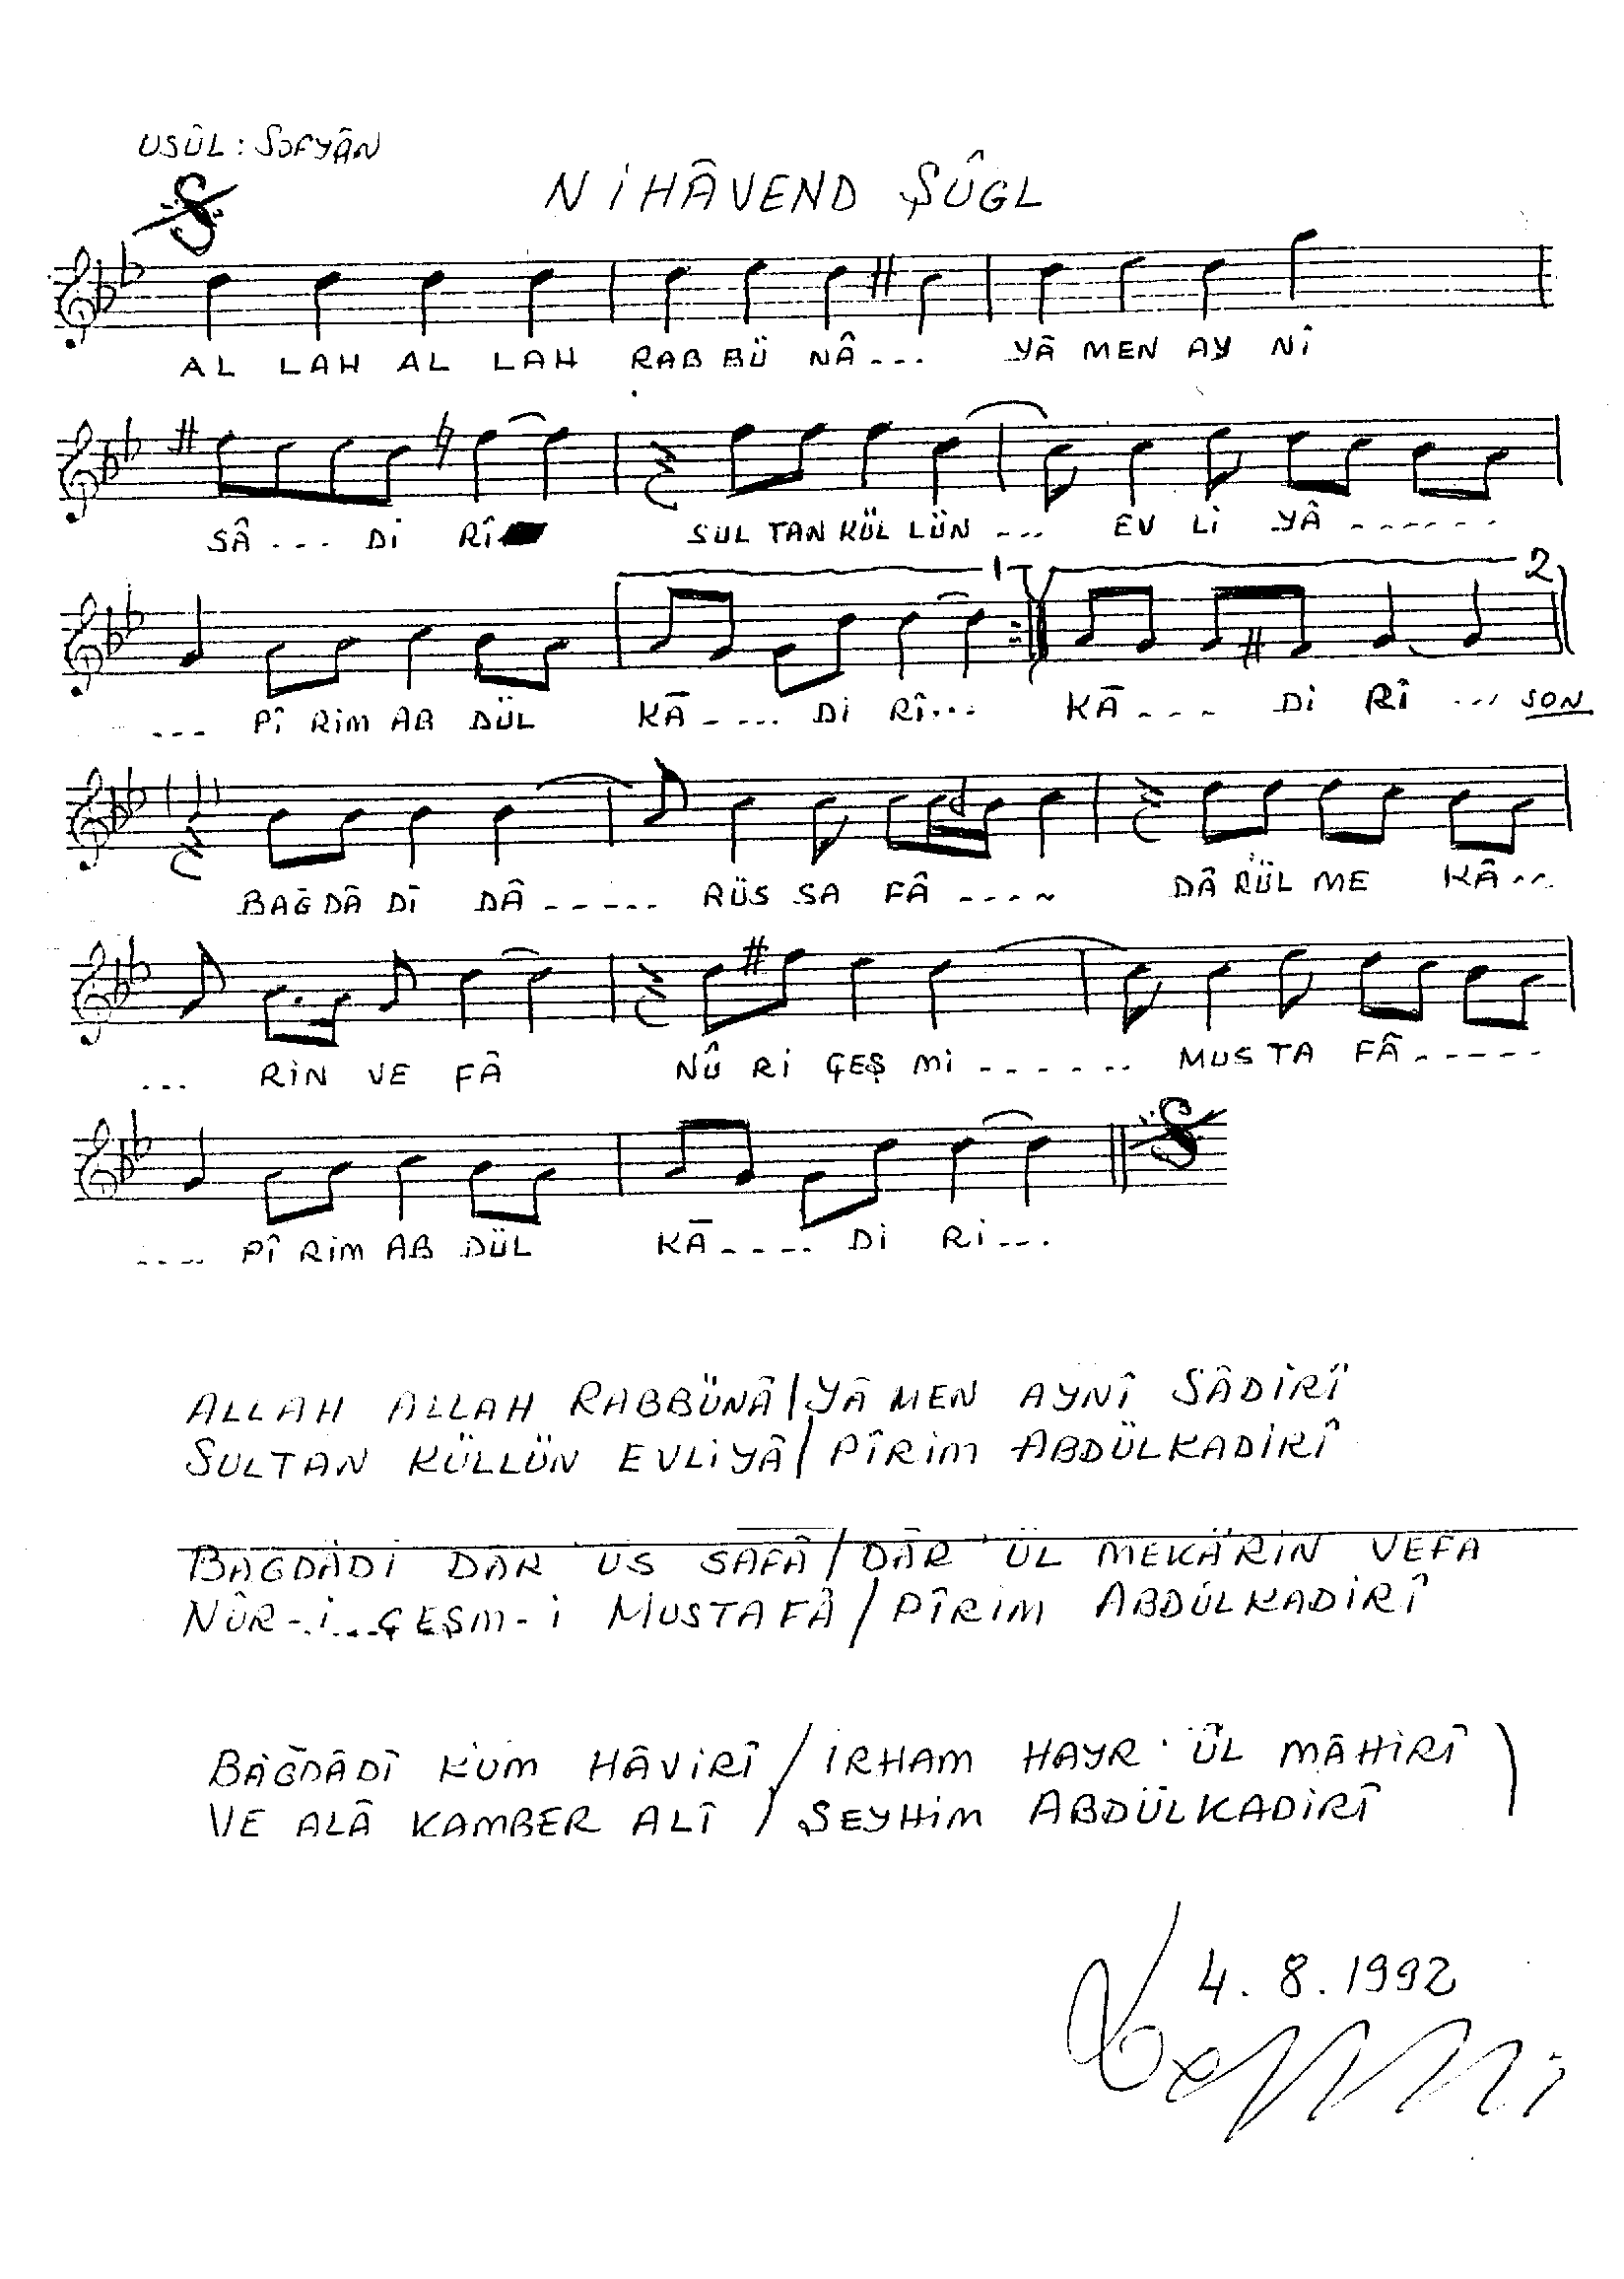 USÛL : SOFYÂN
NİHÂVEND ŞÛGL
AL LAH AL LAH RAB BÜ NÂ... YÂ MEN AY NÎ
SÂ ... Dİ RÎ SUL TAN KÜL LÜN ... EV Lİ YÂ ------
1 2
--- PÎ RİM AB DÜL KĀ ---- Dİ RÎ... KĀ ---- Dİ RÎ ... SON
BAĞ DÂ DÎ DÂ ------ RÜS SA FÂ ---- DÂ RÜL ME KÂ...
... RİN VE FÂ NÛ Rİ ÇEŞ Mİ ------ MUS TA FÂ -----
.... PÎ RİM AB DÜL KĀ ---- Dİ Rİ...
ALLAH ALLAH RABBÜNÂ / YÂ MEN AYNÎ SÂDİRÎ
SULTAN KÜLLÜN EVLİYÂ / PÎRİM ABDÜLKADİRÎ
BAĞDÂDİ DÂR 'ÜS SAFÂ / DÂR 'ÜL MEKÂRİN VEFA
NÛR-İ ÇEŞM-İ MUSTAFÂ / PÎRİM ABDÜLKADİRÎ
BAĞDÂDÎ KUM HÂVİRÎ / IRHAM HAYR 'ÜL MÂHİRÎ )
VE ALÂ KAMBER ALÎ / ŞEYHİM ABDÜLKADİRÎ
4.8.1992